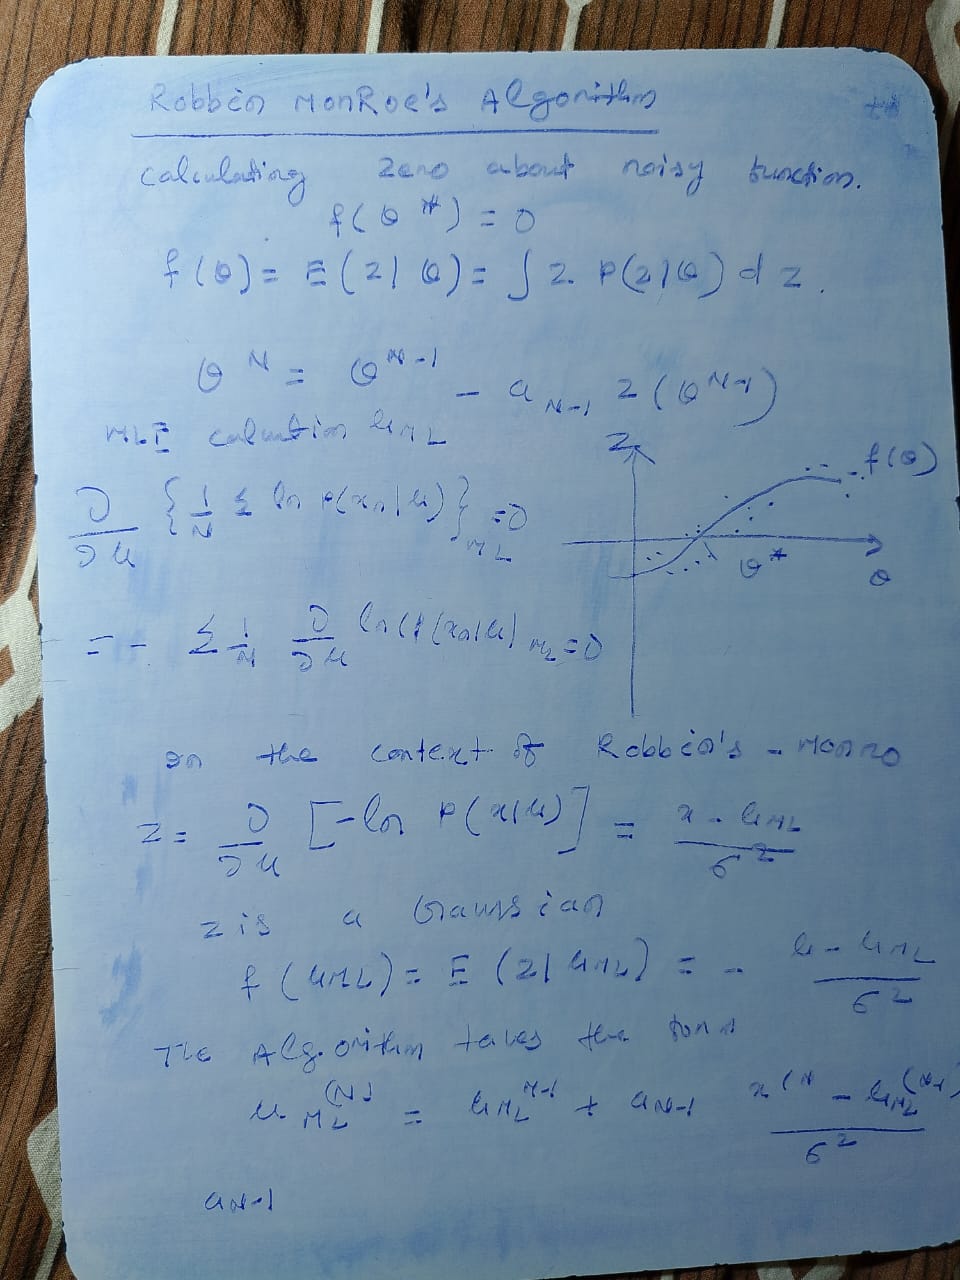 Robbin MonRoe's Algorithm
calculating zero about noisy function.
f(θ*) = 0
f(θ) = E(z|θ) = ∫ z. P(z|θ) dz.
θ^N = θ^{N-1} - a_{N-1} z(θ^{N-1})
MLE calculation μ_ML
z
f(θ)
∂/∂μ {1/N Σ ln P(x_n|μ)}_ML = 0
θ*
θ
= - Σ 1/N ∂/∂μ ln(P(x_n|μ)_ML = 0
on the context of Robbin's - Monro
z = ∂/∂μ [-ln P(x|μ)] = (x - μ_ML)/σ²
z is a Gaussian
f(μ_ML) = E(z|μ_ML) = - (μ - μ_ML)/σ²
The Algorithm takes the form
μ_ML^(N) = μ_ML^{N-1} + a_{N-1} (x^(N - μ_ML^(N-1))/σ²
a_{N-1}